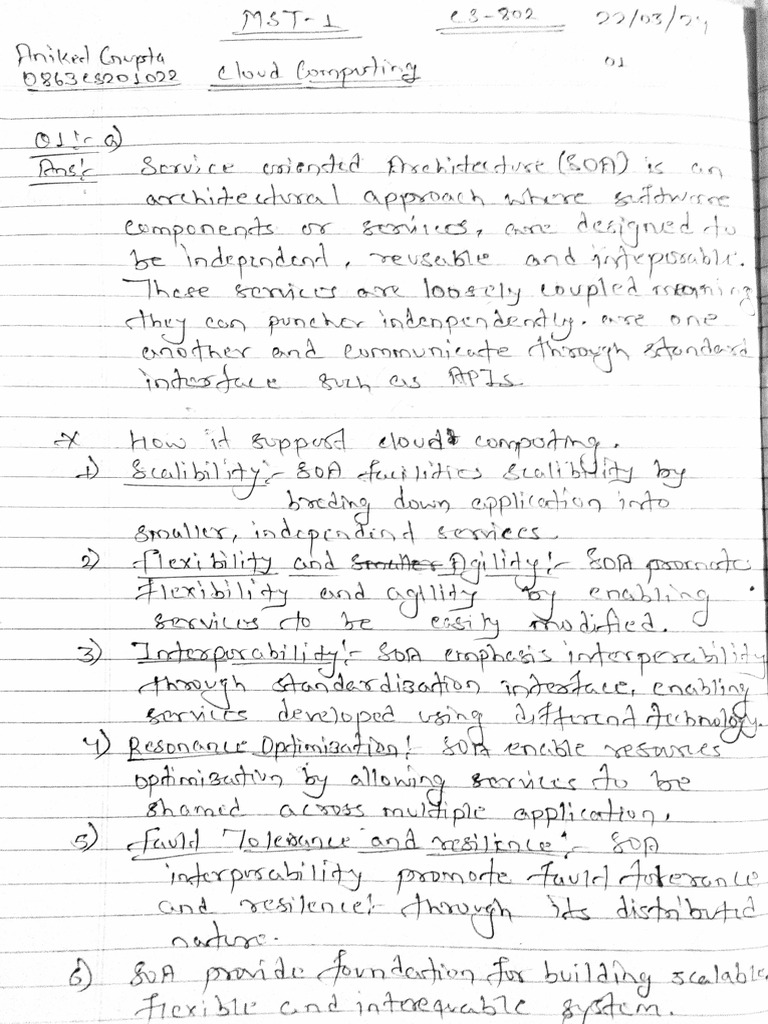 MST-1 CS-802 22/03/24
Aniket Gupta
0863CS201022 Cloud Computing 01
Q1:- a)
Ans:- Service oriented Architecture (SOA) is an
architectural approach where software
components or services, are designed to
be independend, reusable and inteporable.
These services are loosely coupled meaning
they can puncher indenpendently. are one
another and communicate through standard
interface such as APIs.
* How it support cloud computing.
1) Scalibility:- SOA facilities scalibility by
breding down application into
smaller, independind services.
2) flexibility and Agility:- SOA promote
flexibility and agility by enabling
services to be easily modified.
3) Interporability:- SOA emphasis interperability
through standardization interface, enabling
services developed using different technology.
4) Resonance Optimization:- SOA enable resources
optimization by allowing services to be
shamed across multiple application.
5) fauld Tolerance and resilience:- SOA
interporability promote fauld tolerance
and resilence:- through its distributed
nature.
6) SOA provide foundation for building scalable,
flexible and interequable system.